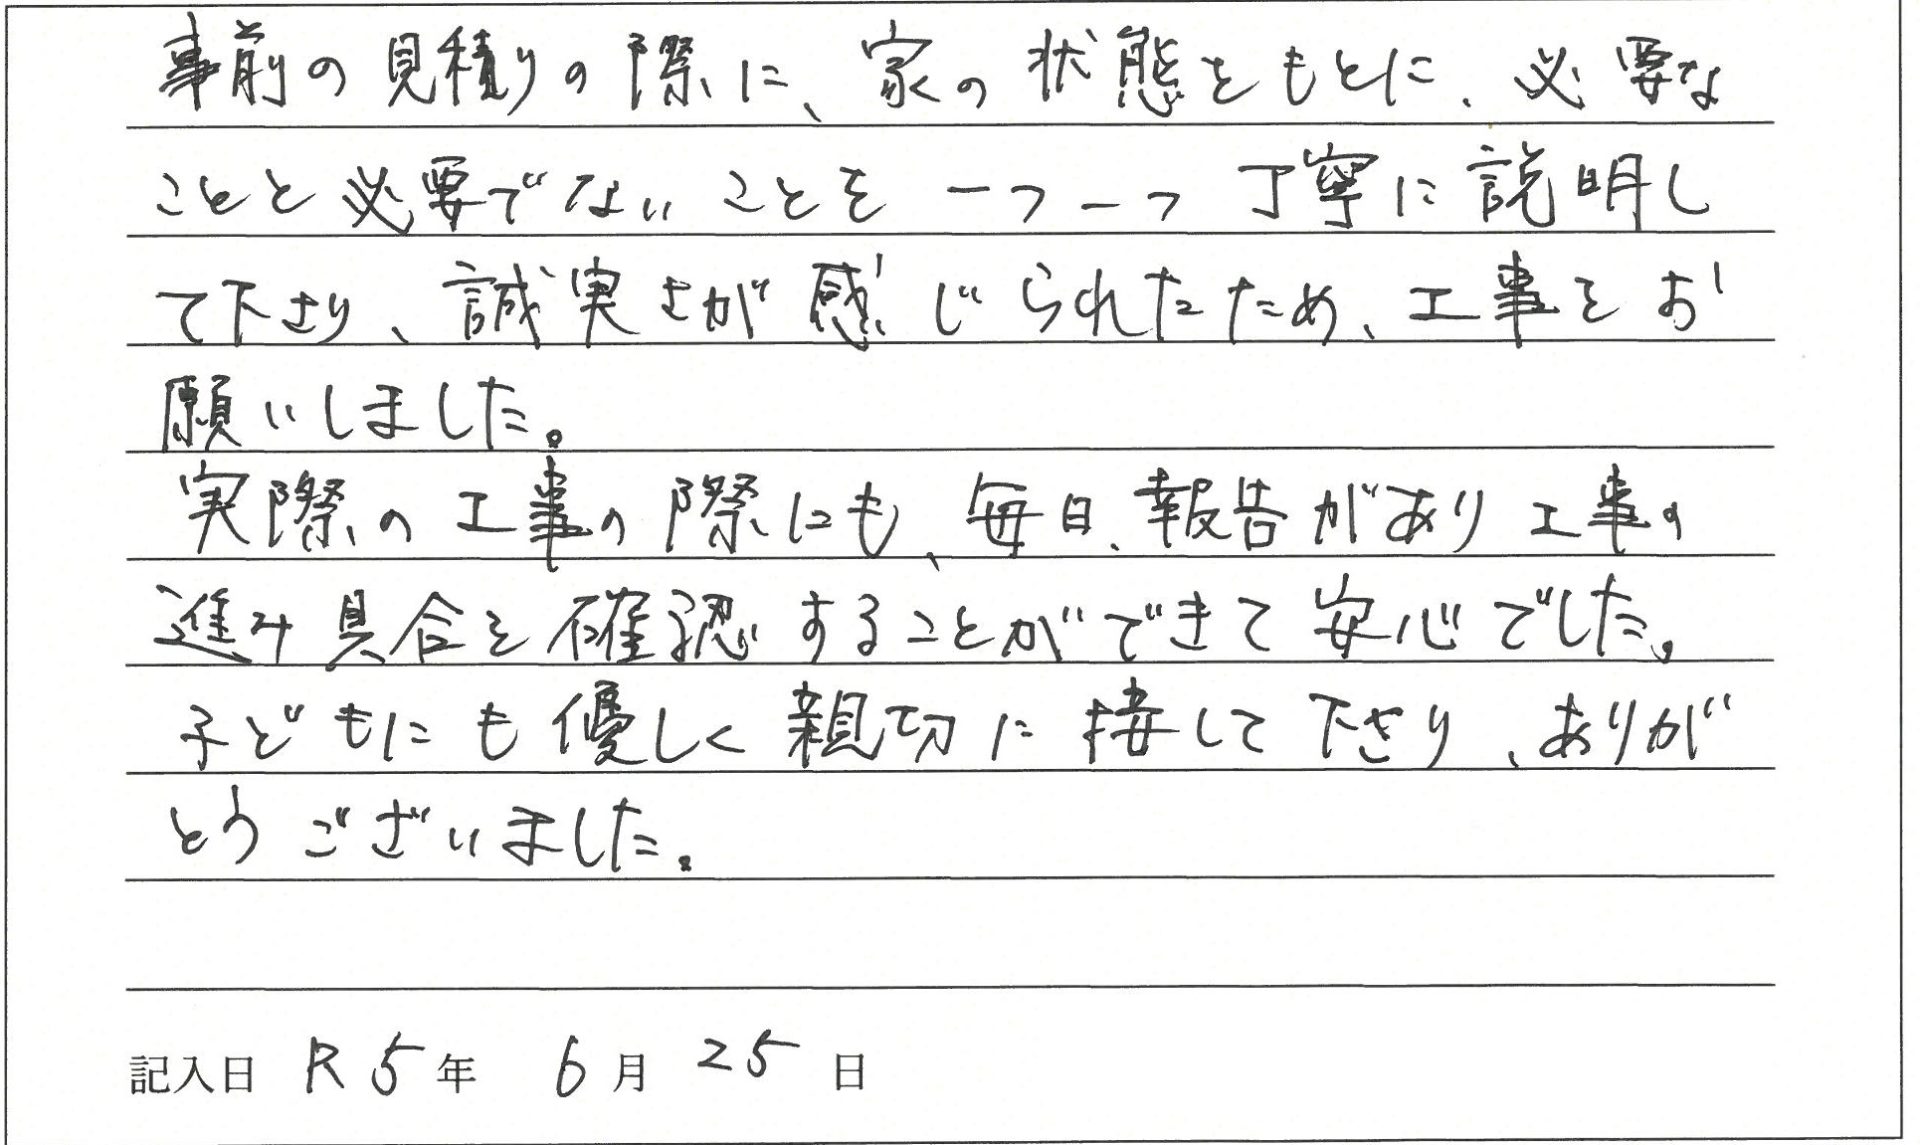 事前の見積りの際に、家の状態をもとに、必要な
ことと必要でないことを一つ一つ丁寧に説明し
て下さり、誠実さが感じられたため、工事をお
願いしました。
実際の工事の際にも、毎日、報告があり工事の
進み具合を確認することができて安心でした。
子どもにも優しく親切に接して下さり、ありが
とうございました。
記入日 R5年 6月 25日